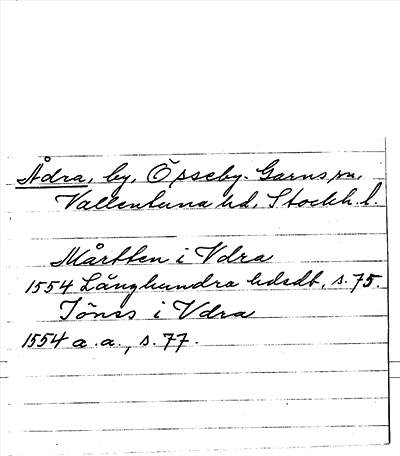 Ådra, by, Össeby-Garns sn,
Vallentuna hd, Stockh. l.
Mårtten i Vdra
1554 Långhundra hdsdb, s. 75.
Jönss i Vdra
1554 a. a., s. 77.